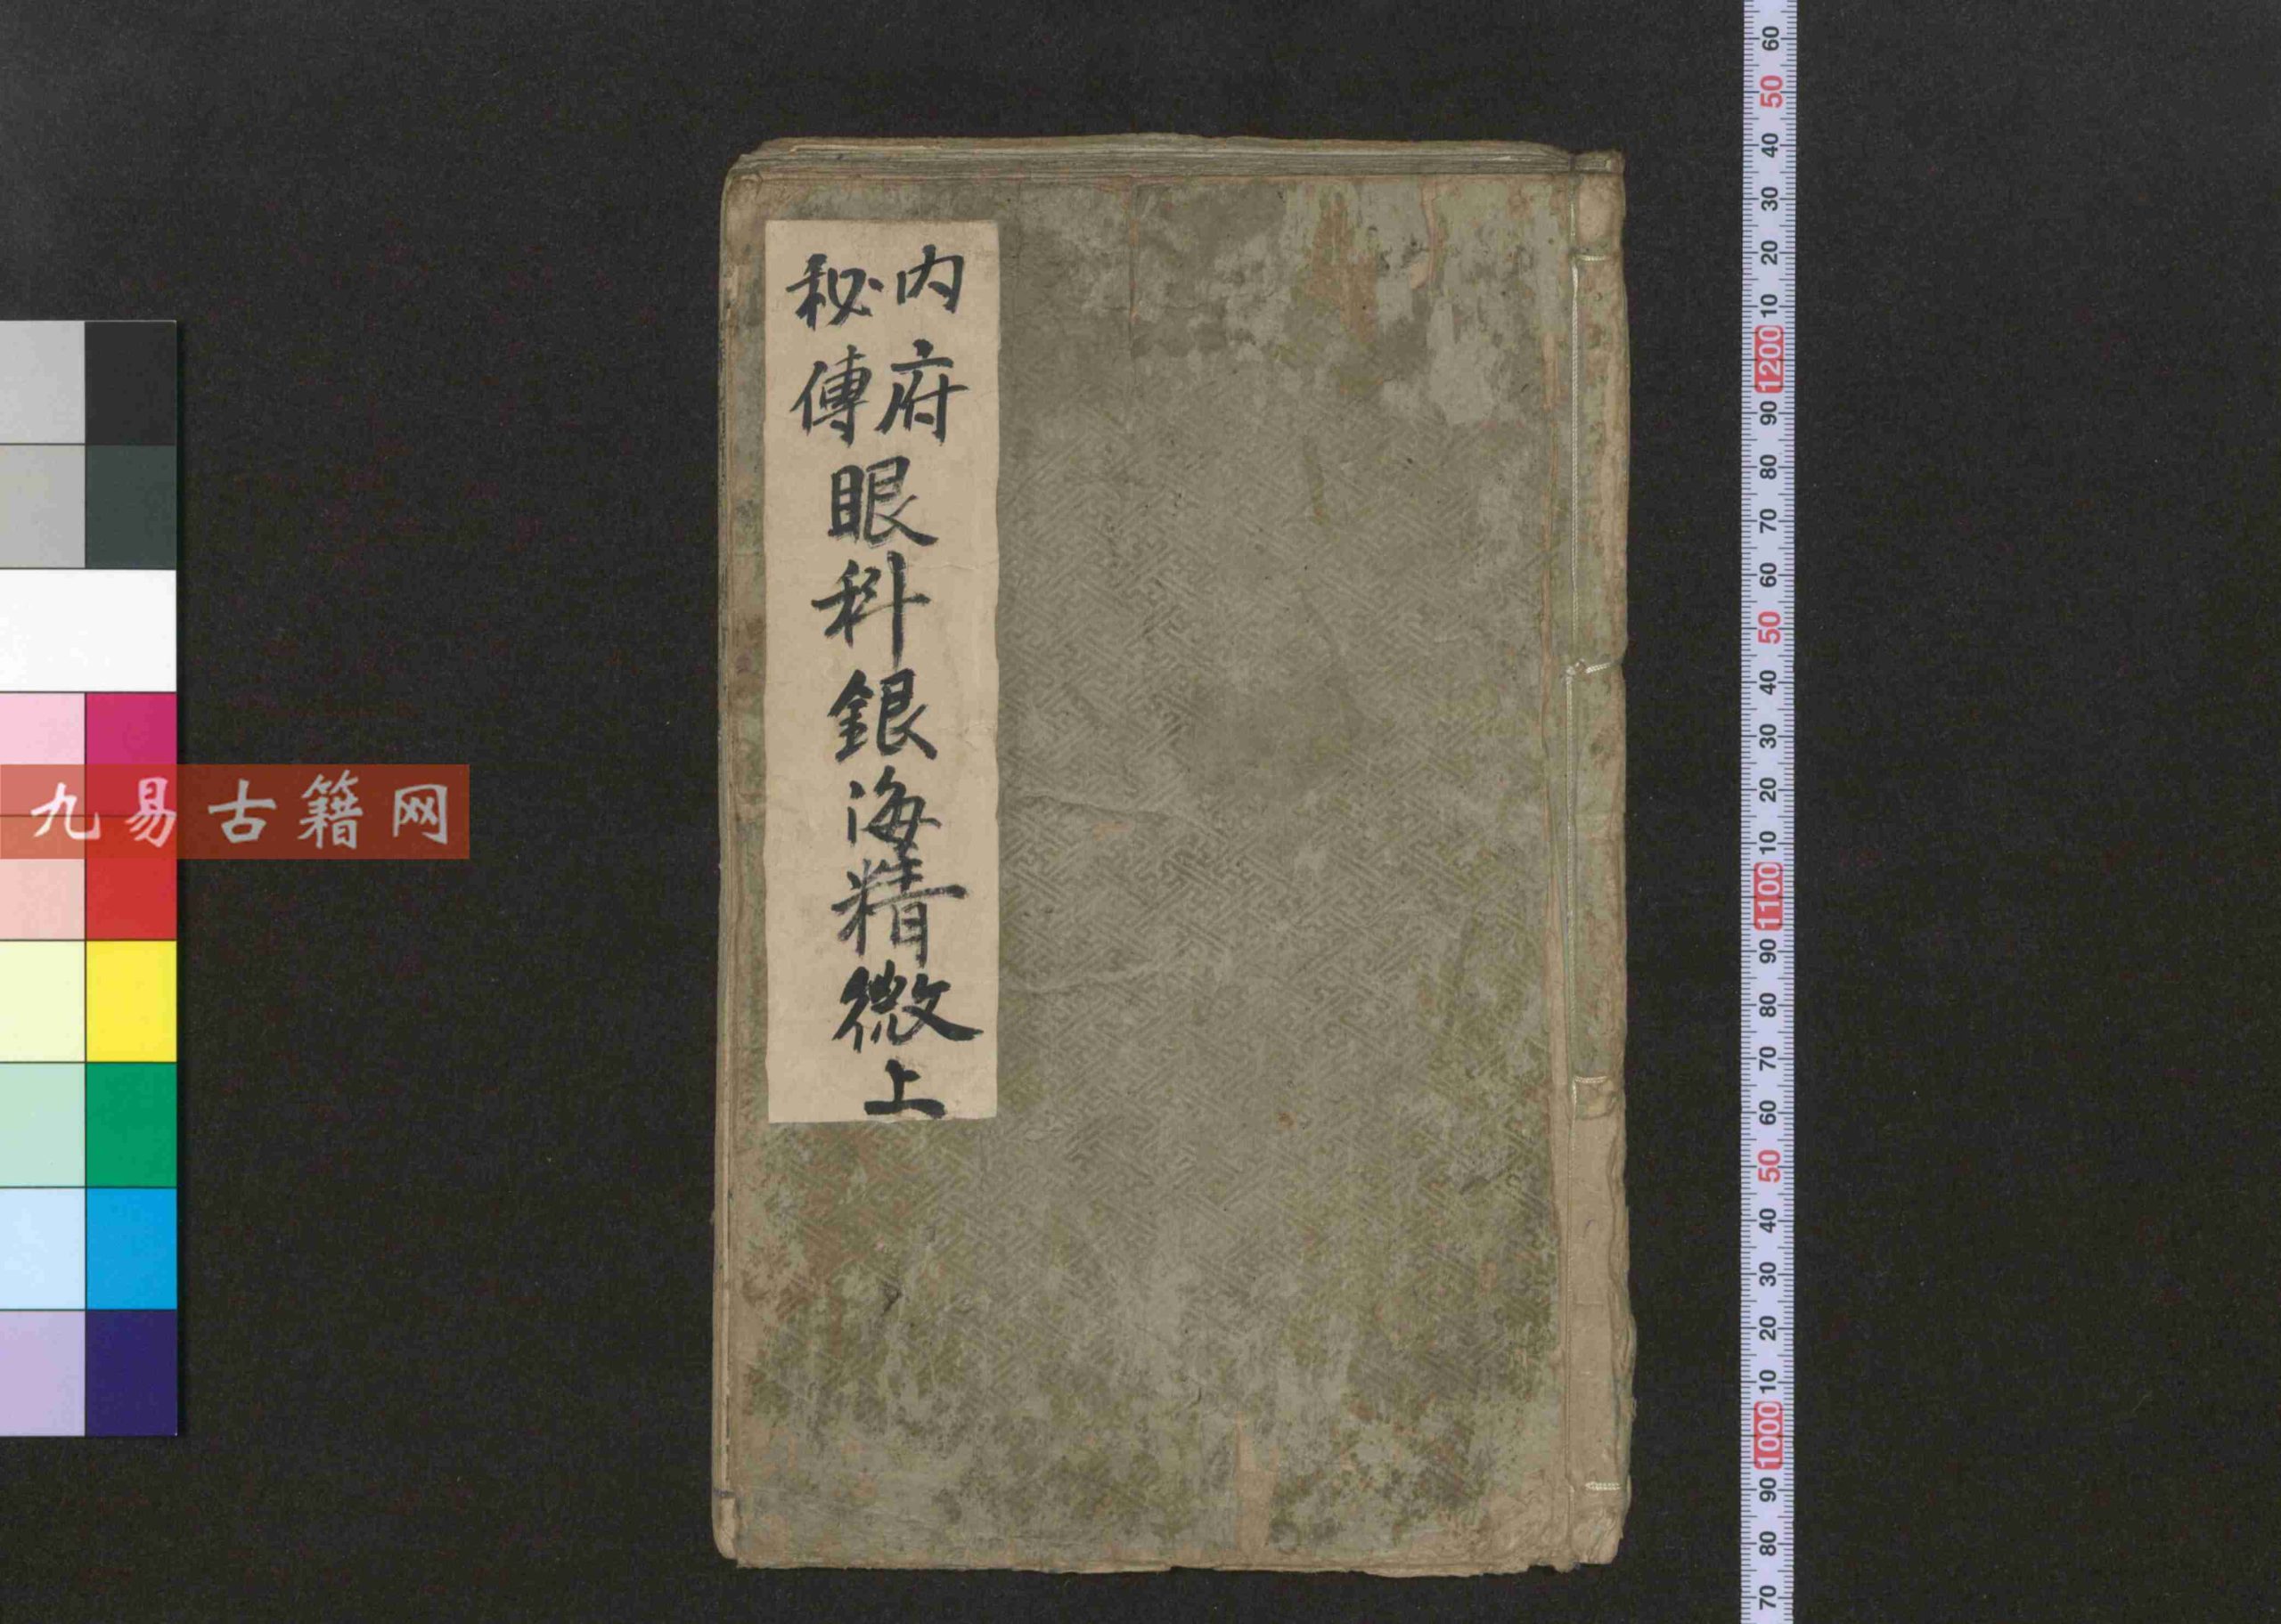 内府
秘傳
眼科銀海精微上
九易古籍网
60
50
40
30
20
10
1200
90
80
70
60
50
40
30
20
10
1100
90
80
70
60
50
40
30
20
10
1000
90
80
70